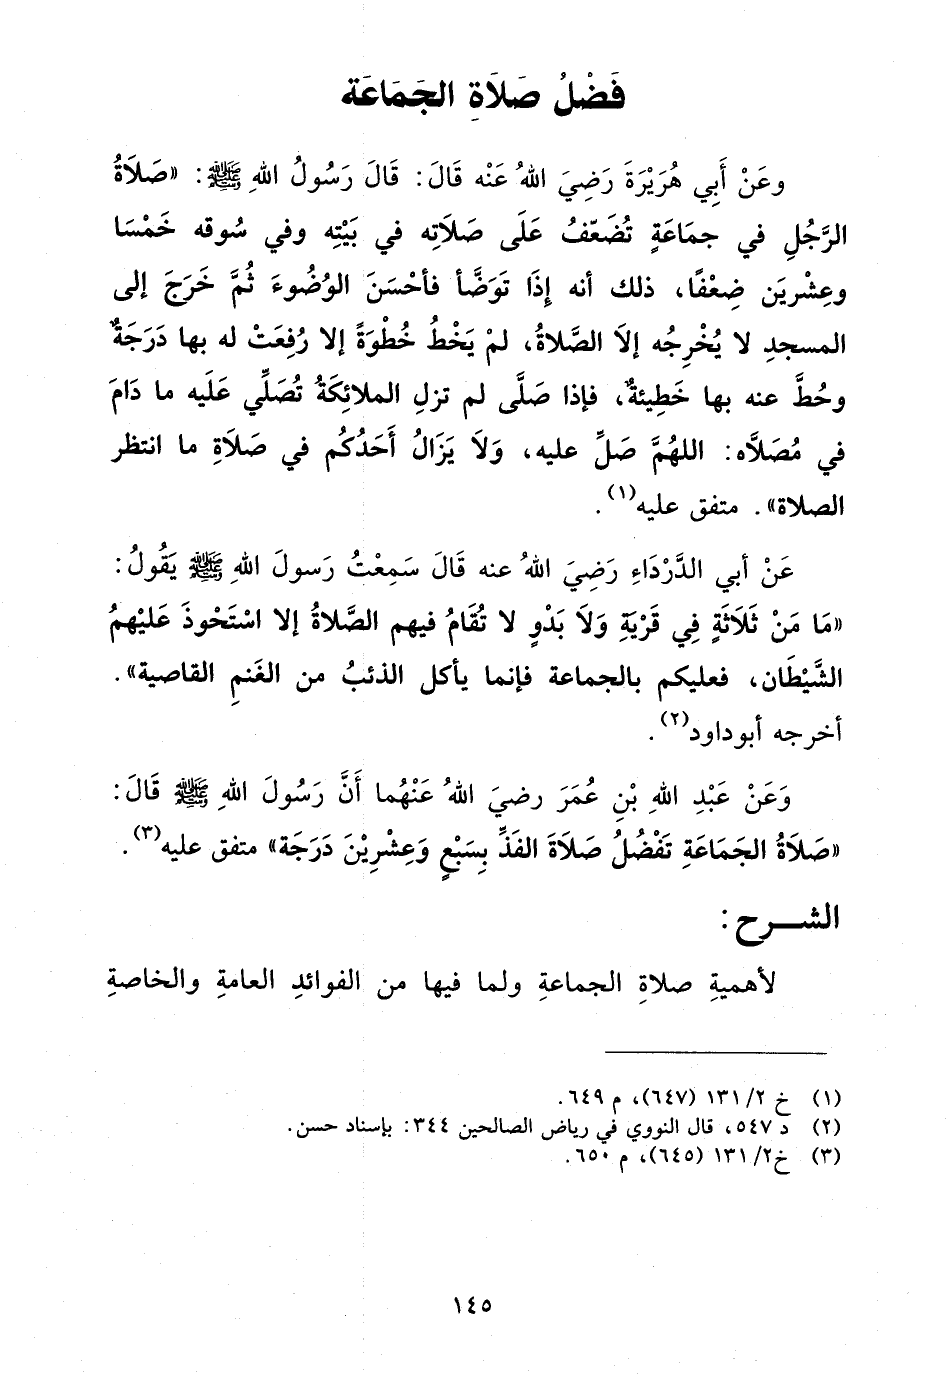 فَضْلُ صَلَاةِ الجَمَاعَة
وعَنْ أَبِي هُرَيْرَةَ رَضِيَ اللهُ عَنْه قَالَ: قَالَ رَسُولُ اللهِ ﷺ: «صَلَاةُ
الرَّجُلِ في جمَاعَةٍ تُضَعّفُ عَلَى صَلَاتِه في بَيْتِه وفي سُوقه خَمْسَا
وعِشْريَن ضِعْفًا، ذلك أنه إِذَا تَوَضَّأ فأحْسَنَ الوُضُوءَ ثُمَّ خَرَجَ إلى
المسجدِ لا يُخْرِجُه إلاَ الصَّلاةُ، لمْ يَخْطُ خُطْوَةً إلا رُفِعَتْ له بها دَرَجَةٌ
وحُطَّ عنه بها خَطِيئةٌ، فإذا صَلَّى لم تزلِ الملائِكَةُ تُصَلِّي عَلَيه ما دَامَ
في مُصَلاَّه: اللهُمَّ صَلِّ عليه، وَلَا يَزَالُ أَحَدُكُم في صَلَاةِ ما انتظر
الصلاة». متفق عليه(١).
عَنْ أبي الدَّرْدَاءِ رَضِيَ اللهُ عنه قَالَ سَمِعْتُ رَسولَ اللهِ ﷺ يَقُولُ:
«مَا مَنْ ثَلَاثَةٍ فِي قَرْيَةِ وَلَا بَدْوٍ لا تُقَامُ فيهم الصَّلاةُ إلا اسْتَحْوذَ عَليْهمُ
الشَّيْطَان، فعليكم بالجماعة فإنما يأكل الذئبُ من الغَنمِ القاصية».
أخرجه أبوداود(٢).
وَعَنْ عَبْدِ اللهِ بْنِ عُمَرَ رضيَ اللهُ عَنْهُما أَنَّ رَسُولَ اللهِ ﷺ قَالَ:
«صَلَاةُ الجَمَاعَةِ تَفْضُلُ صَلَاةَ الفَذِّ بِسَبْعٍ وَعِشْرِيْنَ دَرَجَة» متفق عليه(٣).
الشـــرح:
لأهميةِ صلاةِ الجماعةِ ولما فيها من الفوائدِ العامةِ والخاصةِ
(١) خ ٢/ ١٣١ (٦٤٧)، م ٦٤٩.
(٢) د ٥٤٧، قال النووي في رياض الصالحين ٣٤٤: بإسناد حسن.
(٣) خ٢/ ١٣١ (٦٤٥)، م ٦٥٠.
١٤٥